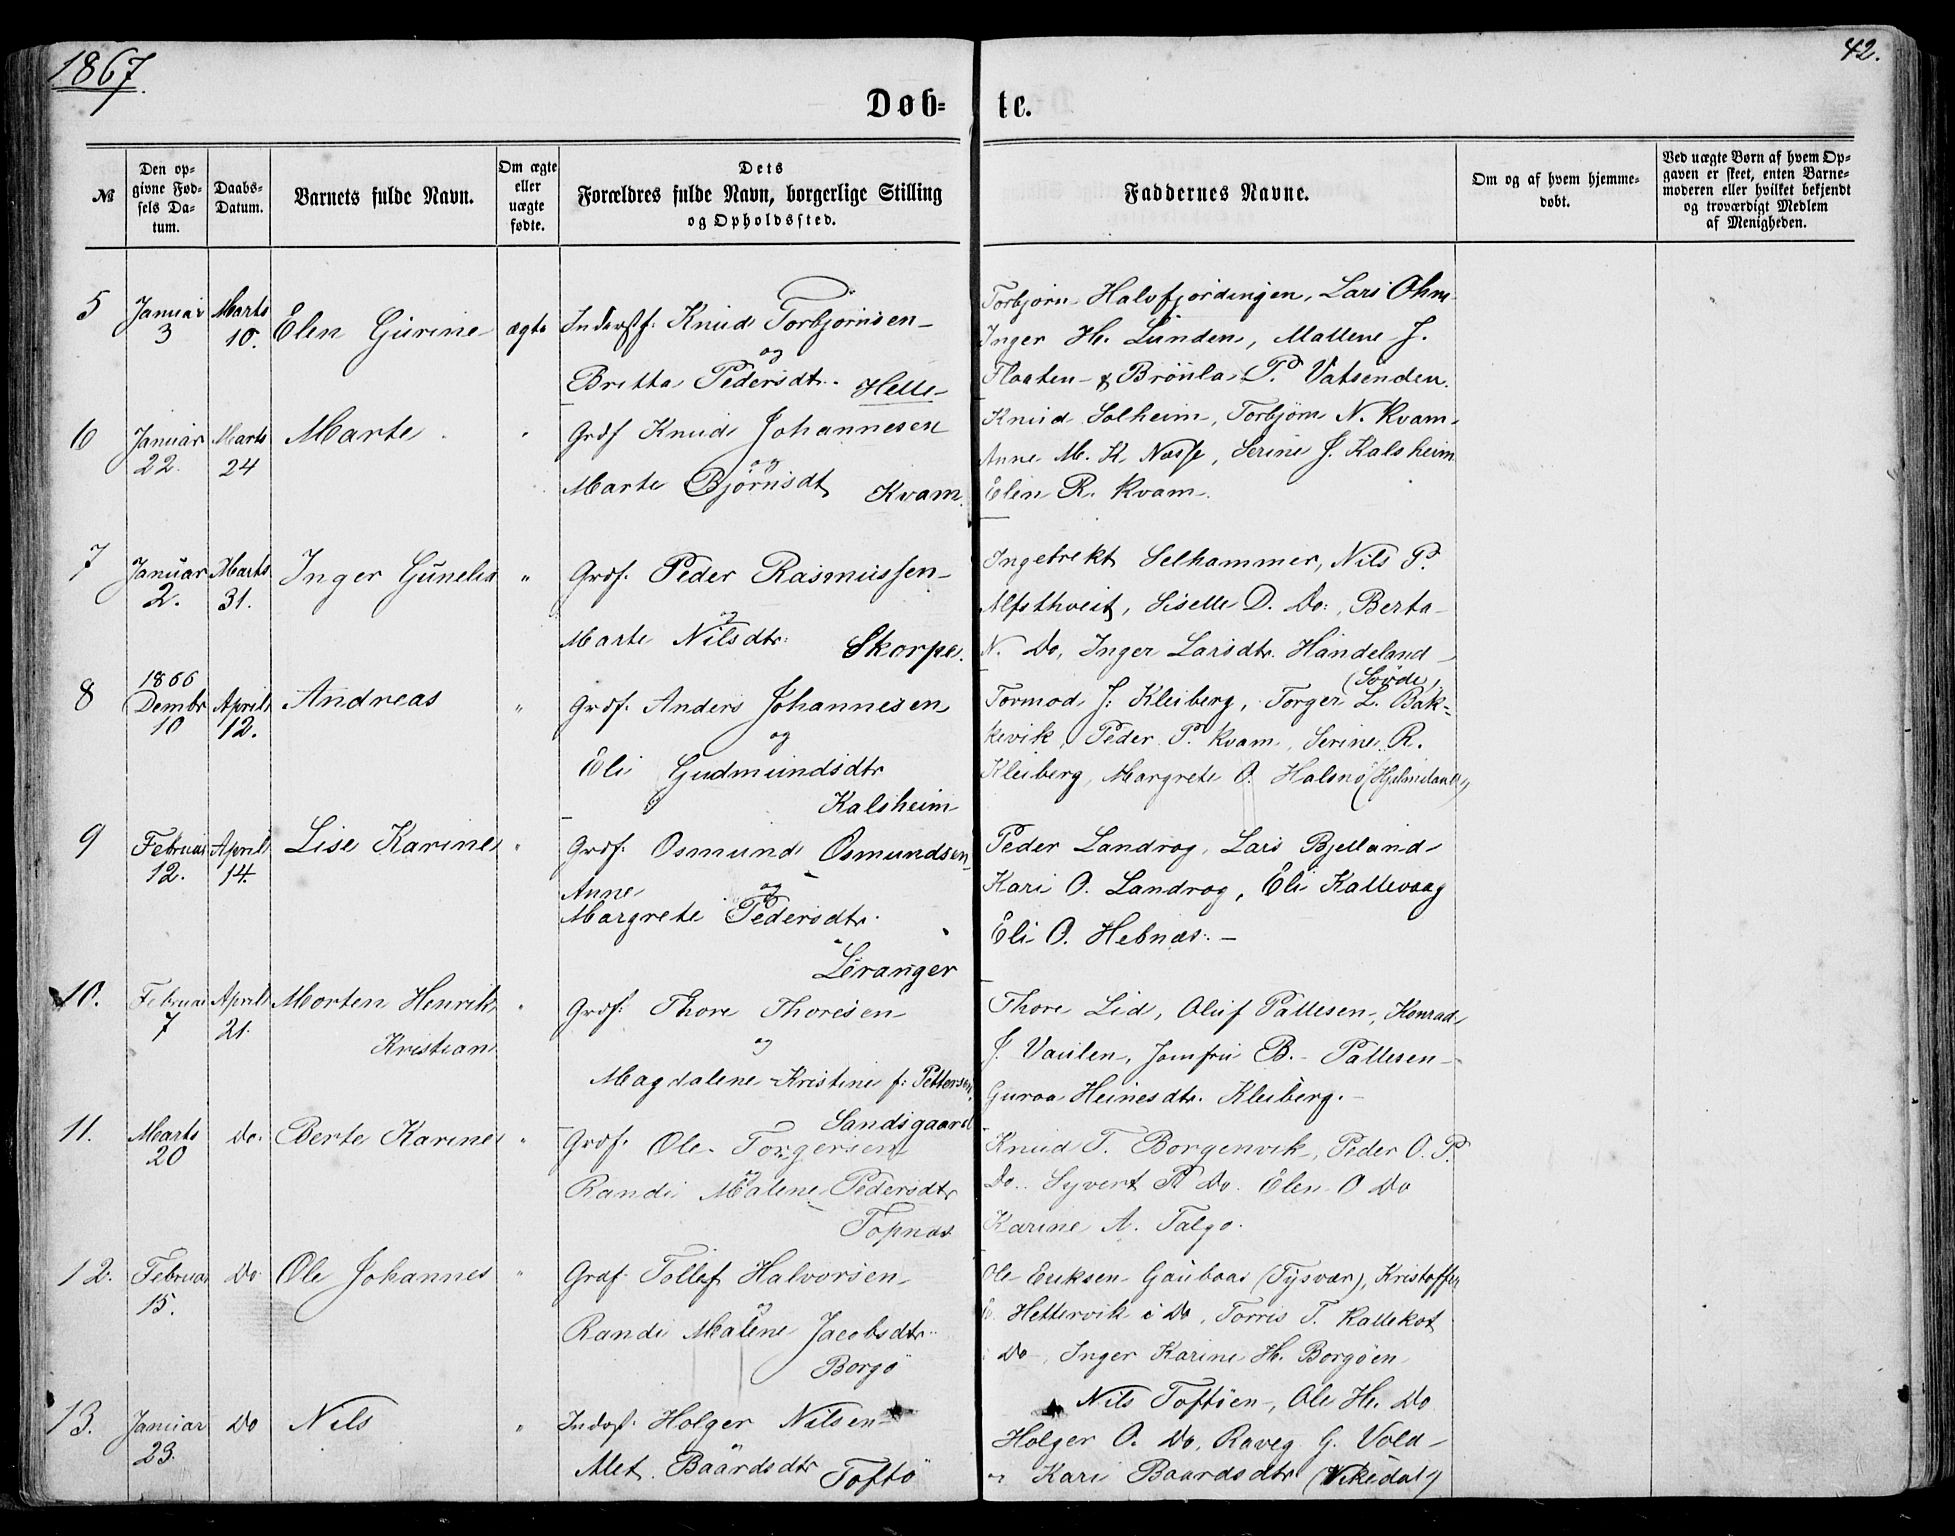 1867.
42.
Døb- te.
№
Den opgivne Fødsels Datum.
Daabs-Datum.
Barnets fulde Navn.
Om ægte eller uægte fødte.
Dets Forældres fulde Navn, borgerlige Stilling og Opholdssted.
Faddernes Navne.
Om og af hvem hjemmedøbt.
Ved uægte Børn af hvem Opgaven er skeet, enten Barnemoderen eller hvilket bekjendt og troværdigt Medlem af Menigheden.
5 Januar 3 Marts 10. Elen Gurine ægte
Inderst f: Knud Torbjørnsen
og
Britta Pedersdtr. Helle
Torbjørn Halvfjordingen, Lars Ohm
Inger H. Lunden, Mallene J.
Flaaten & Brönla P. Vatsenden.
6 Januar 22. Marts 24 Marte "
Grdf Knud Johannesen
og
Marte Bjørnsdt Kvam
Knud Solheim, Torbjørn N. Kvam
Anne M. K. Næsse, Serine J. Kalsheim
Elen R. Kvam
7 Januar 2. Marts 31. Inger Gunelia "
Grdf. Peder Rasmussen
og
Marte Nilsdtr. Skorpe.
Ingebrekt Selhammer, Nils P.
Alfsthveit, Siselle D. Do:, Berta
N. Do, Inger Larsdtr. Handeland
(Sövde)
8 1866 Dembr 10 April 12. Andreas "
Grdf. Anders Johannesen
og
Eli Gudmundsdtr
Kalsheim
Tormod J. Kleiberg, Torger L. Bak-
kevik, Peder P. Kvam, Serine R.
Kleiberg, Margrete O. Halsnö (Hjelmeland)
9 Februar 12. April 14. Lise Karine "
Grdf. Osmund Osmundsen
Anne og
Margrete Pedersdtr.
Leranger
Peder Landrog, Lars Bjelland
Kari O. Landrog, Eli Kallevaag
Eli O. Hebnæs.
10. Februar 7 April 21. Morten Henrik "
Kristian
Grdf. Thore Thoresen
og
Magdalene Kristine f: Pettersen
Sandsgaard
Thore Lid, Oluf Pallesen, Konrad
J. Vaulen, Jomfru B. Pallesen
Guroa Heinesdtr. Kleiberg.
11. Marts 20 Do. Berte Karine "
Grdf. Ole Torgersen
og
Randi Malene Pedersdtr
Topnæs
Knud T. Borgenvik, Peder O. P.
Do. Syvert P. Do. Elen O Do
Karine A. Talgo.
12. Februar 15. Do Ole Johannes "
Grdf. Tollef Halvorsen
og
Randi Malene Jacobsdtr.
Borgö
Ole Eriksen Gaubaas (Tysvær), Kristoffer
E. Hettervik i Do, Torris T. Kallekot
Do, Inger Karine H. Borgöen
13. Januar 23. Do Nils "
Inderst. Holger Nilsen
Alet. Baardsdtr Toftö
Nils Toftöen, Ole H. Do
Holger O. Do, Raveg G. Vold
Kari Baardsdtr (Vikedal)